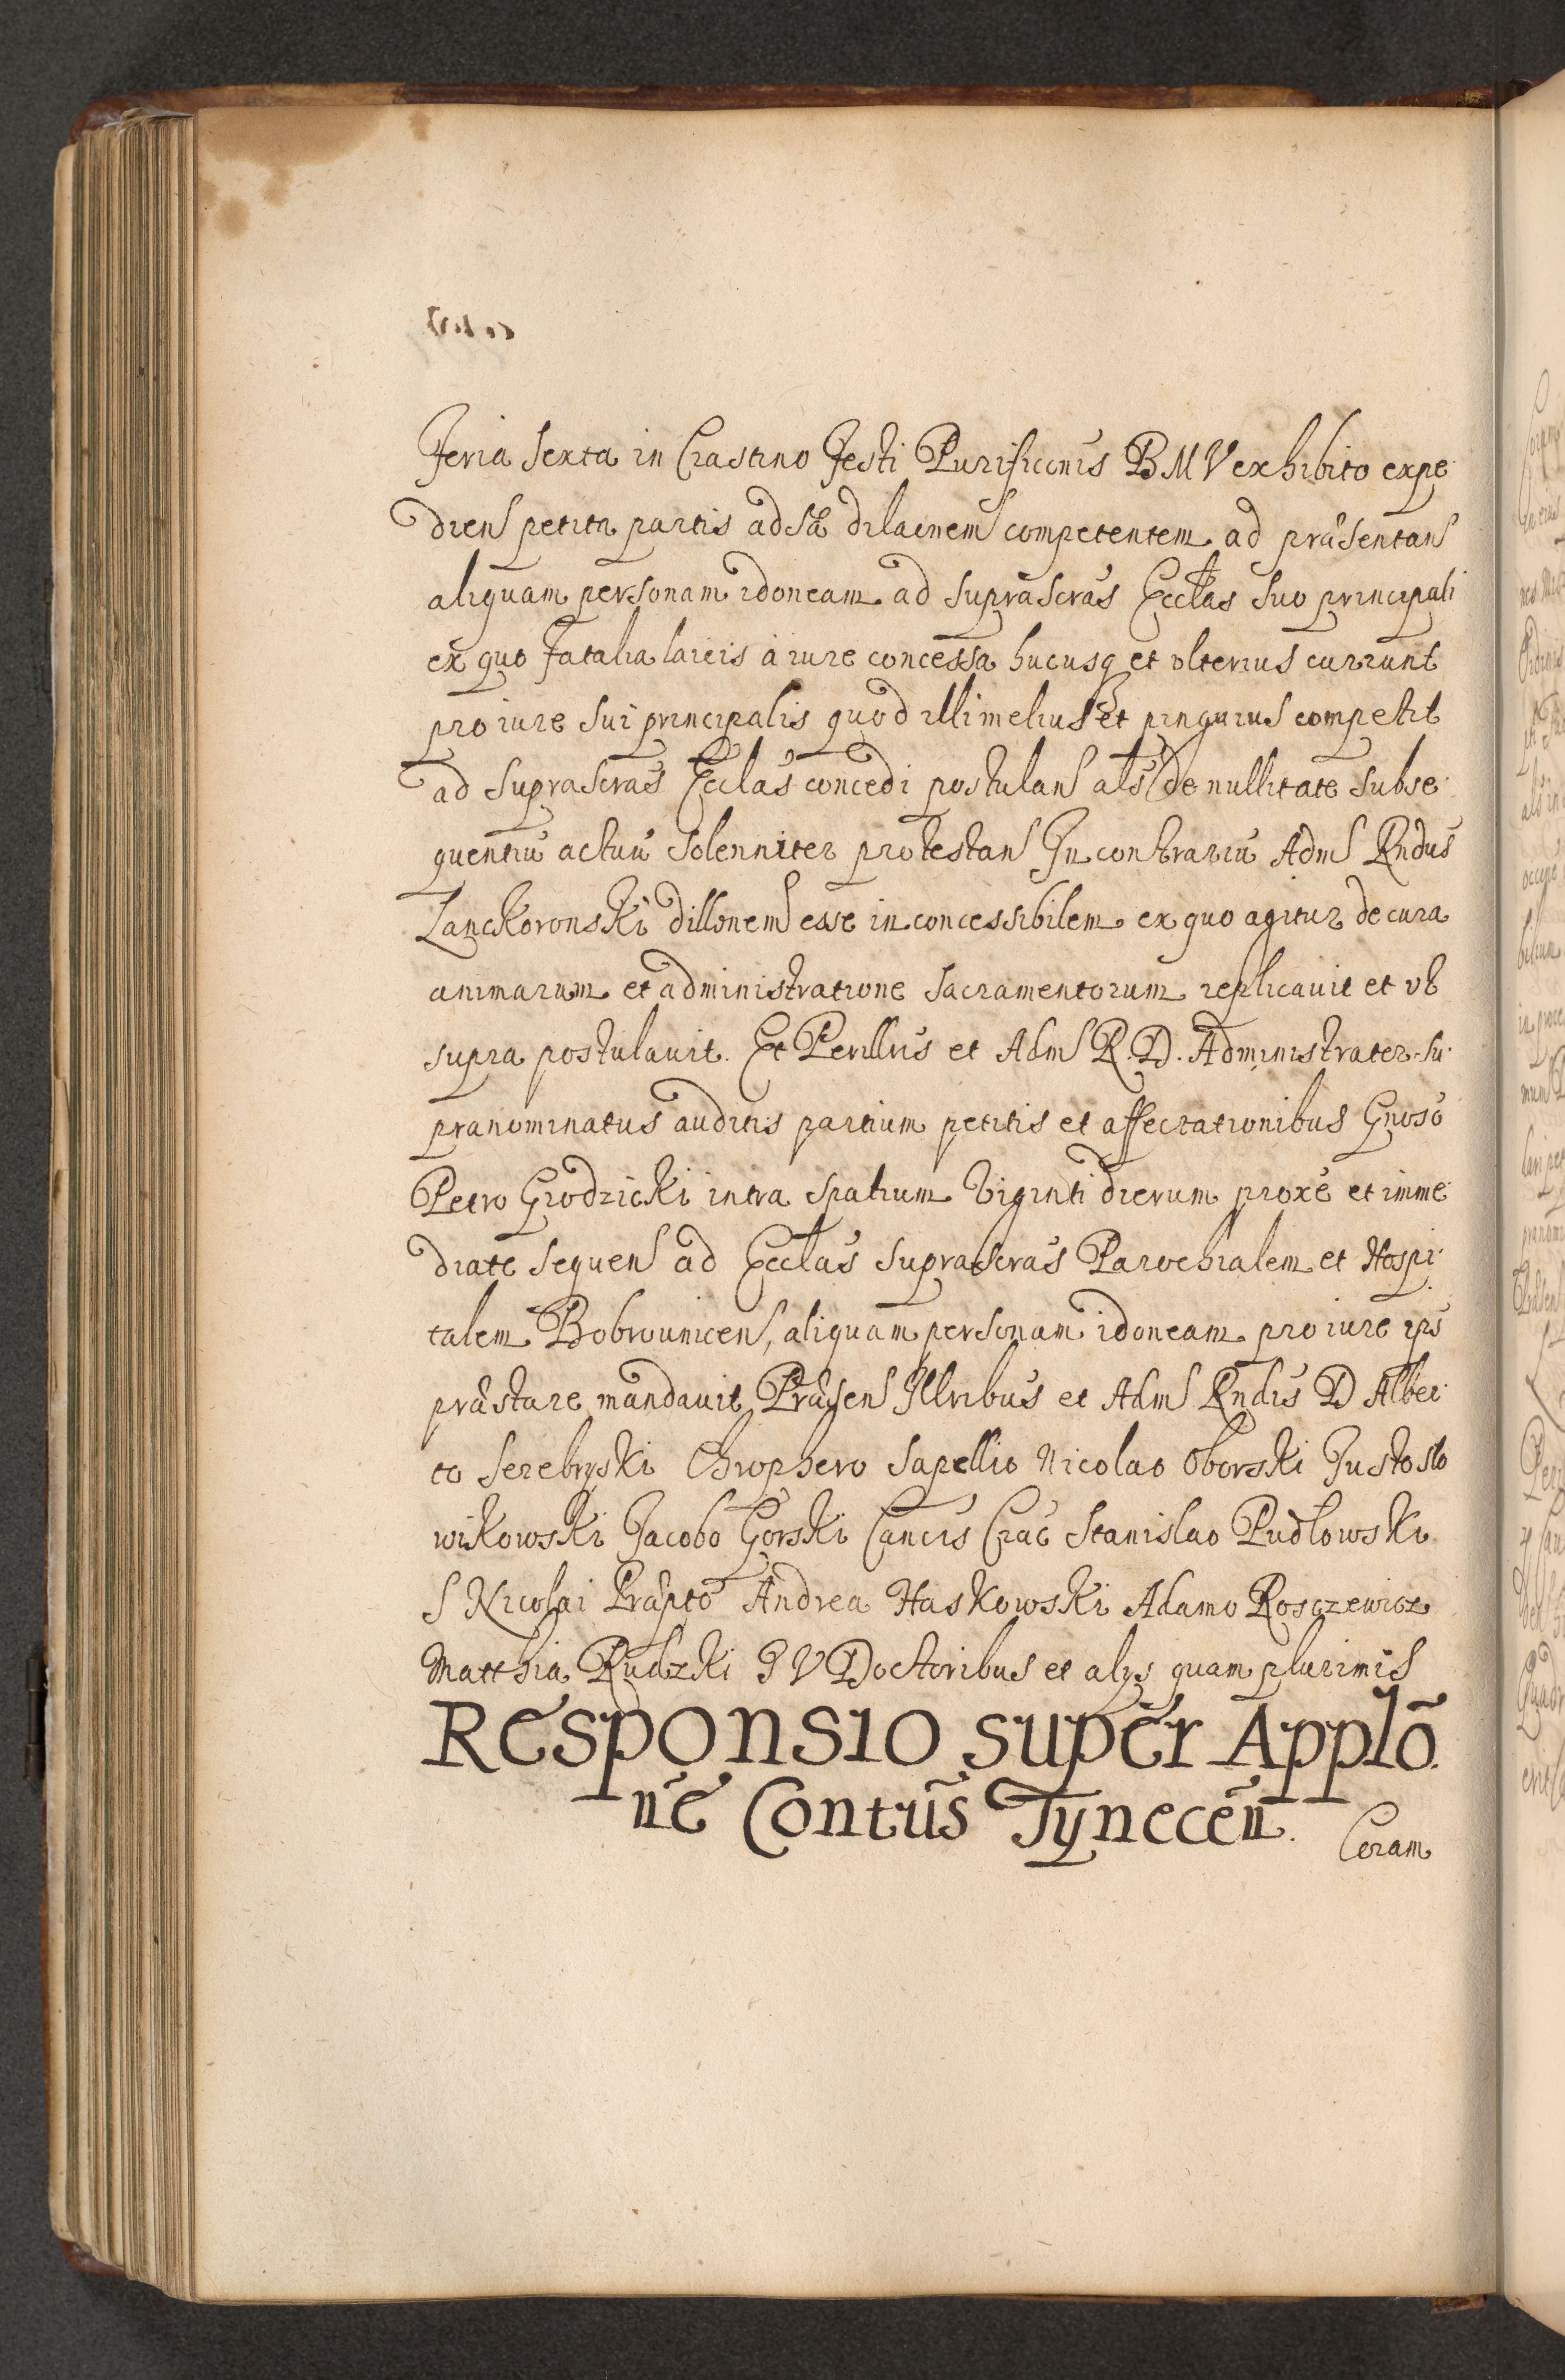 Feria sexta in Crastino Festi Purificōnis B M V exhibito expe
diens petita partis adsā dilaōnem competentem ad præsentan
aliquam personam idoneam ad suprascrās Eccłas suo principali
ex quo fatalia laicis à iure concessa hucusq et vlterius currunt
pro iure sui principalis quod illi melius et pinguius competit
ad suprascrās Eccłas concedi postulans als de nullitate subse
quentiū actuū solenniter protestans In contrariū Adm Rndus
Lanckoronski dillōnem esse inconcessibilem ex quo agitur de cura
animarum et administratione sacramentorum replicauit et vt
supra postulauit. Et Perillris et Adm R. D. Administrator su
pranominatus auditis partium petitis et affectationibus Gnoso
Petro Grodzicki intra spatium Viginti dierum proxe et imme
diate sequen ad Eccłas suprascras Parochialem et Hospi
talem Bobrounicen, aliquam personam idoneam pro iure ips
præstare mandauit Præsen Illribus et Adm Rndis D Alber
to Serebryski Chrophero Sapellio Nicolao Oborski Justo Slo
wikowski Jacobo Gorski Cancis Crac Stanislao Pudlowski
S Nicolai Præpto Andrea Haskowski Adamo Rosczewicz
Matthia Rudzki I V Doctoribus et alys quam plurimis
Responsio super Applō
nē Contūs Tynecēn.
Coram